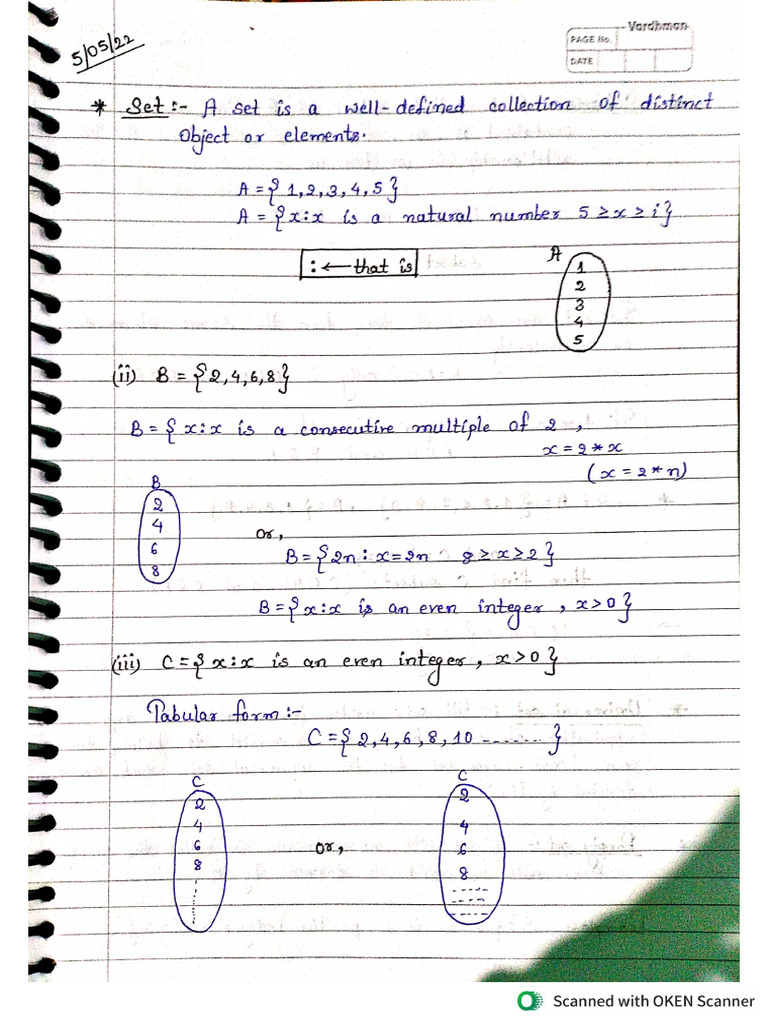 Vardhman
PAGE No.
DATE
5/05/22
* Set :- A set is a well-defined collection of distinct
Object or elements.
A = {1,2,3,4,5}
A = {x:x is a natural number 5 ≥ x ≥ i}
: ← that is
A
1
2
3
4
5
(ii) B = {2,4,6,8}
B = { x:x is a consecutive multiple of 2 ,
x = 2 * x
( x = 2 * n)
B
2
4
6
8
or,
B = {2n : x = 2n 8 ≥ x ≥ 2 }
B = {x:x is an even integer , x>0}
(iii) C = { x:x is an even integer , x>0}
Tabular form :-
C = { 2,4,6,8,10 ........... }
C
2
4
6
8
or,
C
2
4
6
8
Scanned with OKEN Scanner